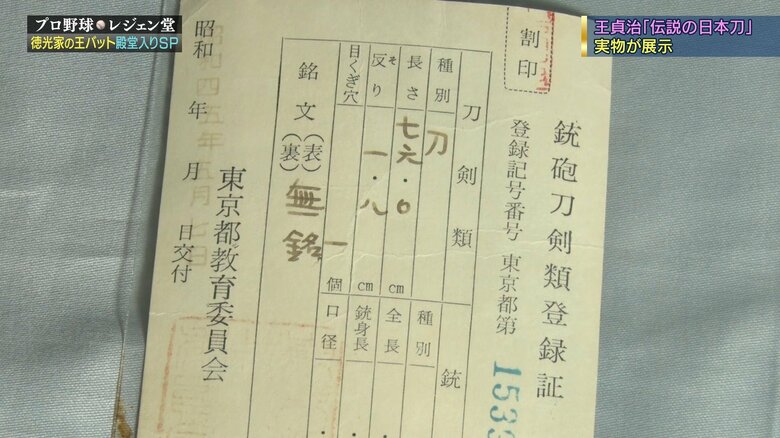 プロ野球レジェン堂
徳光家の王バット殿堂入りSP
王貞治「伝説の日本刀」
実物が展示
割印
銃砲刀剣類登録証
登録記号番号 東京都第 1533
刀剣類
種別 刀
長さ 七六・〇 cm
反り 一・八 cm
そ
目くぎ穴 一個
銘文(表)(裏)無銘
銃
種別
全長
銃身長
口径
昭和四五年五月七日
昭和 年 月 日交付
東京都教育委員会